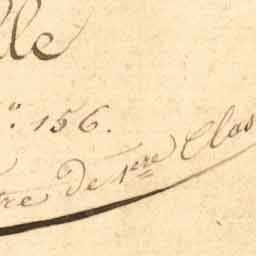 lle
n: 156.
tre de 1ere Clas